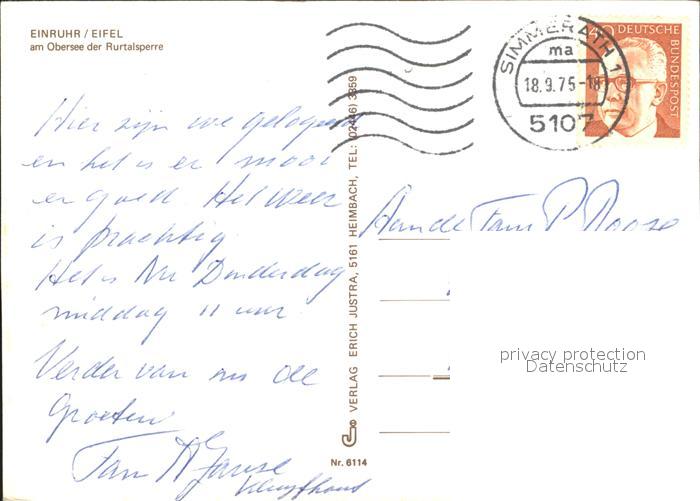 EINRUHR / EIFEL
am Obersee der Rurtalsperre
Hier zijn we gelogeerd
en het is er mooi
en goed. Het weer
is prachtig
Het is Nu Donderdag
middag 11 uur
Verder van ons de
groeten
Fam
Aan de Fam P Roose
SIMMERATH 1
ma
18.9.75-18
5107
40 DEUTSCHE
BUNDESPOST
© VERLAG ERICH JUSTRA, 5161 HEIMBACH, TEL: (02446) 3959
Nr. 6114
privacy protection
Datenschutz